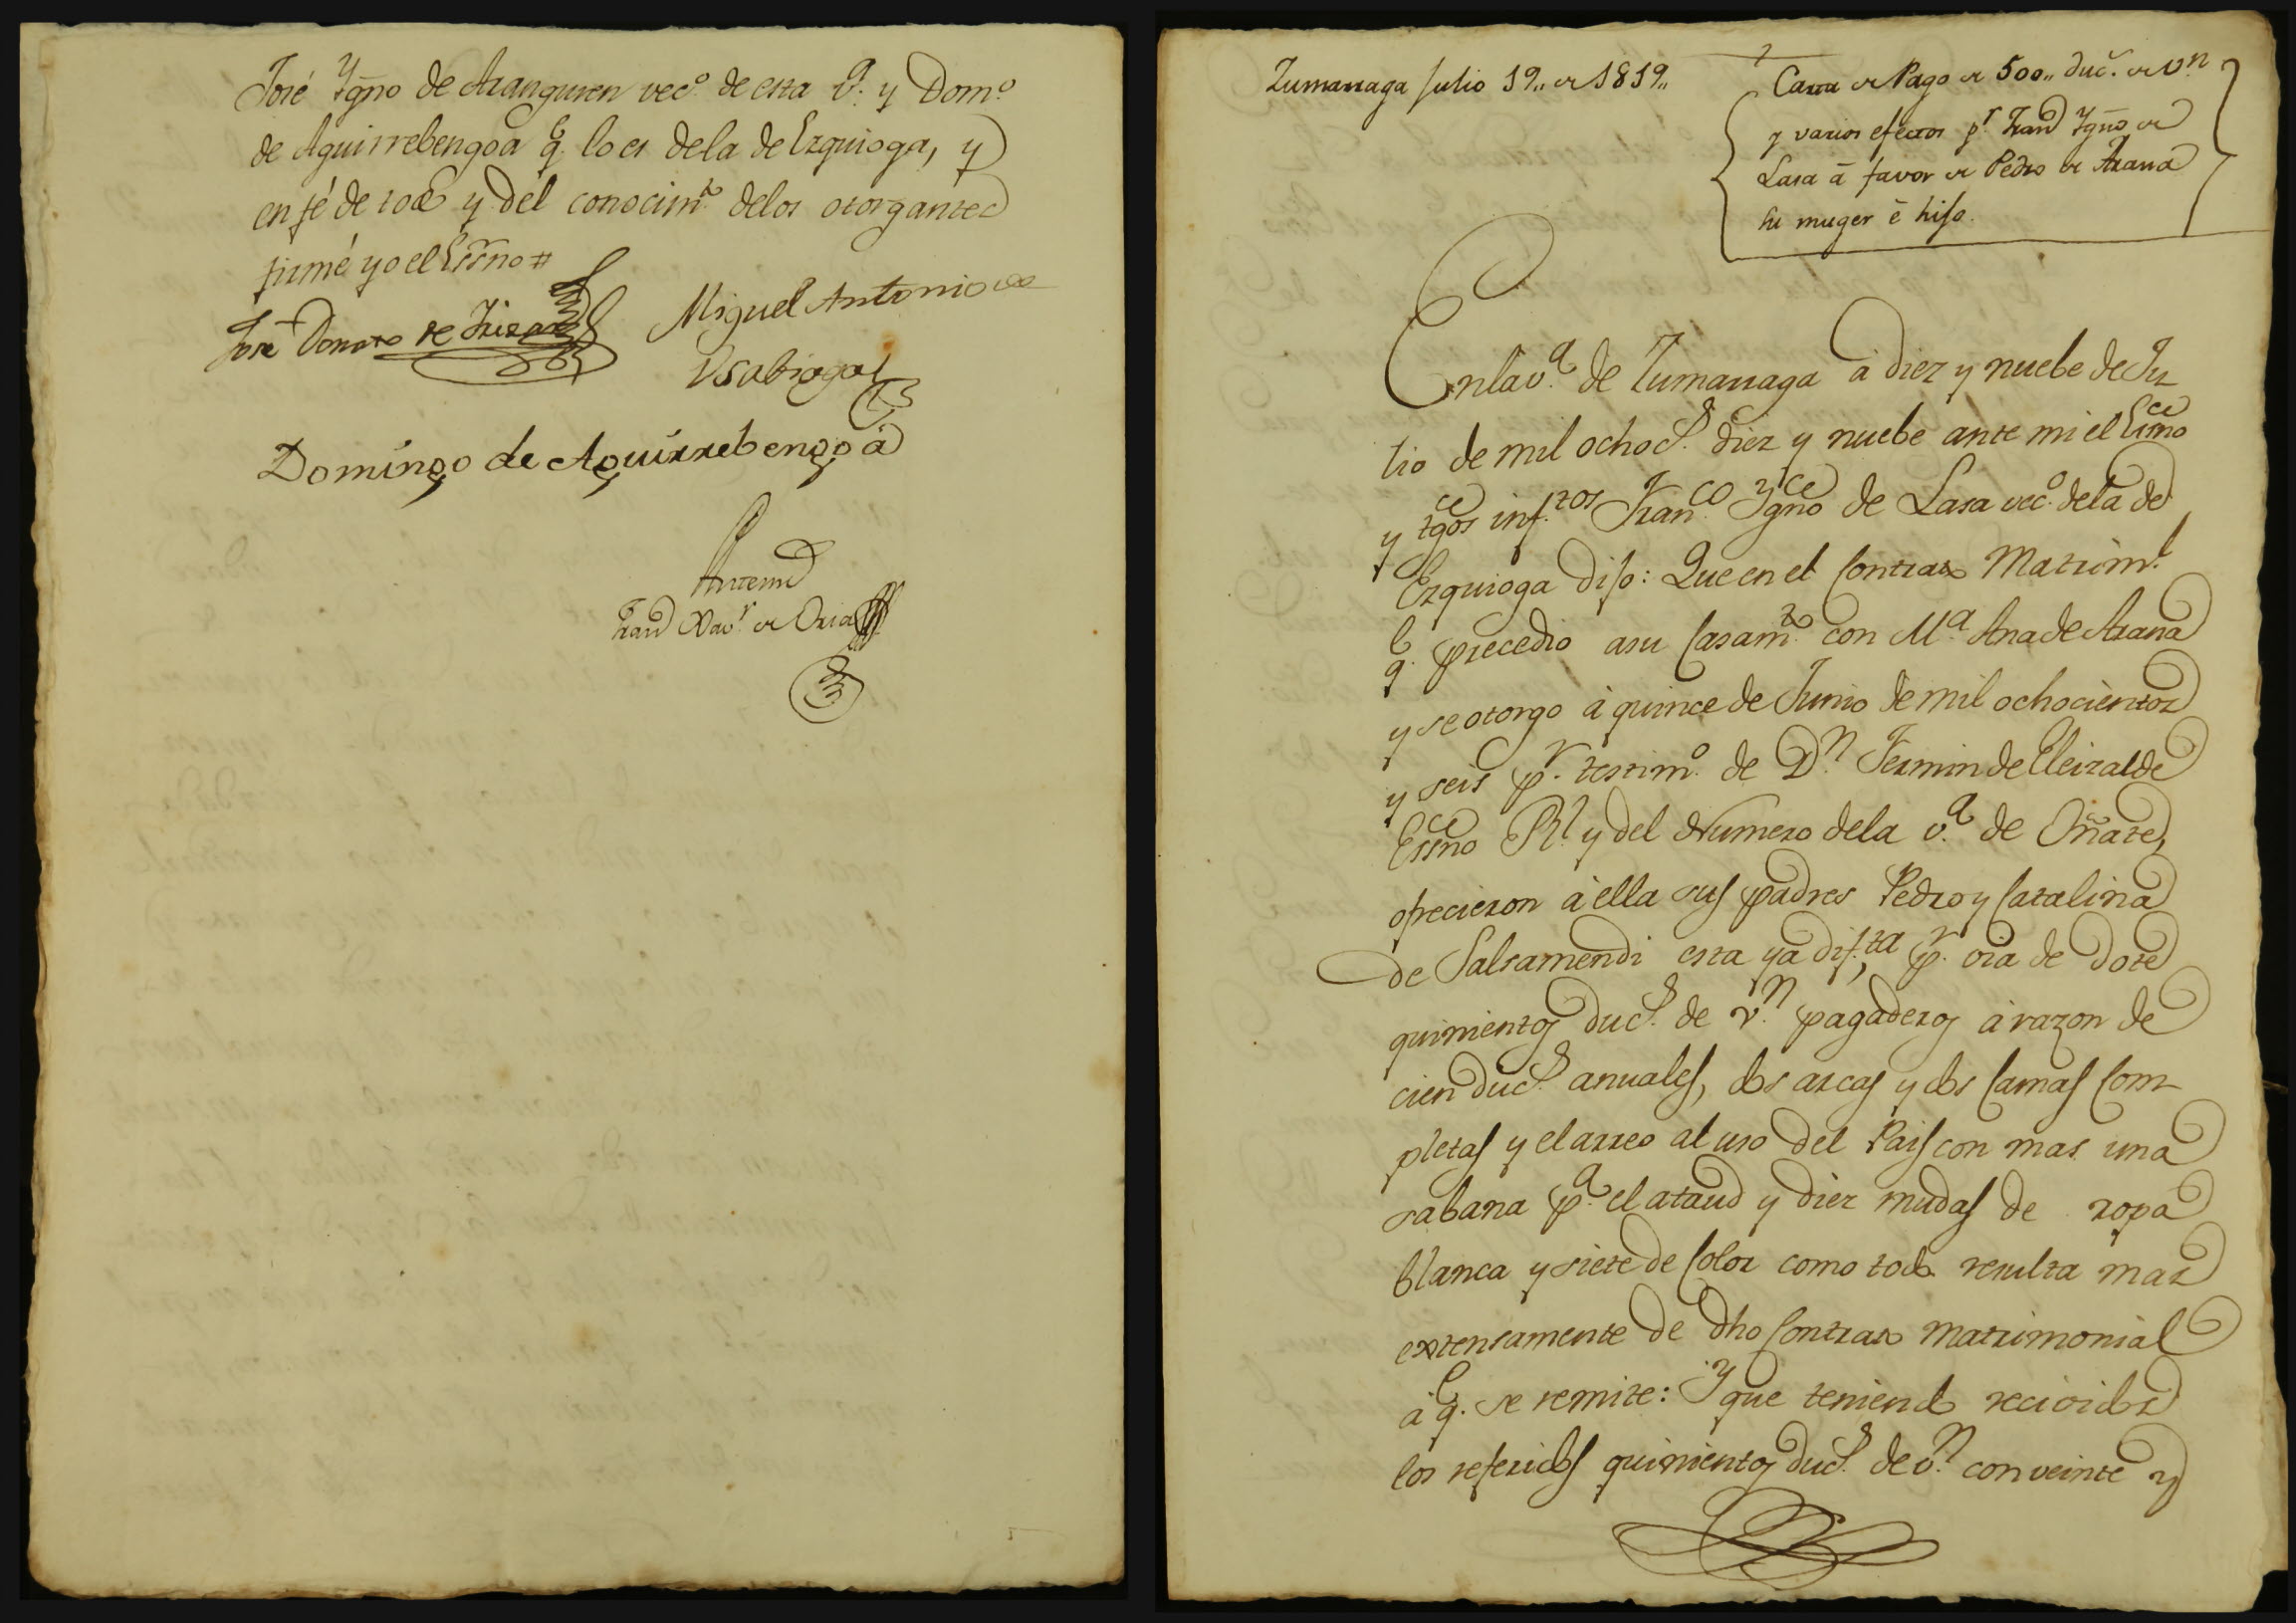 José Ygno de Aranguren vecº de esta vª y Domº
de Aguirrebengoa q. lo es dela de Ezquioga, y
en fé de todo y del conocimto delos otorgantes
firmé yo el Essno #
José Donato de Irizar
Miguel Antonio de
Usabiaga
Domingo de Aguirrebengoa
Antemi
Franco Xavr de Oria
Zumarraga Julio 19,, de 1819,,
Carta de Pago de 500,, duc.s de vn
y varios efectos pr Franco Ygno de
Lasa á favor de Pedro de Arana
su muger é hijo.
Enla v.a de Zumarraga á diez y nuebe de Ju
lio de mil ochoc.s diez y nuebe ante mi el Essno
y tgos inf.tos Fran.co Ygno de Lasa vec.o dela de
Ezquioga dijo: Que en el Contrato Matrim.l
q. precedio asu Casam.to con M.a Ana de Arana
y se otorgo á quince de Junio de mil ochocientos
y seis p.r testim.o de D.n Fermin de Eleizalde
Essno R.l y del Numero dela v.a de Oñate,
ofrecieron á ella sus padres Pedro y Catalina
de Salsamendi esta ya dif.ta p.r via de dote
quinientos duc.s de v.n pagaderos á razon de
cien duc.s anuales, dos arcas y dos Camas Com-
pletas y el arreo al uso del Pais con mas una
sabana p.a el ataud y diez mudas de ropa
blanca y siete de Color como todo resulta mas
extensamente de dho Contrato matrimonial
á q. se remite: Y que teniendo recividos
los referidos quinientos duc.s de v.n con veinte y